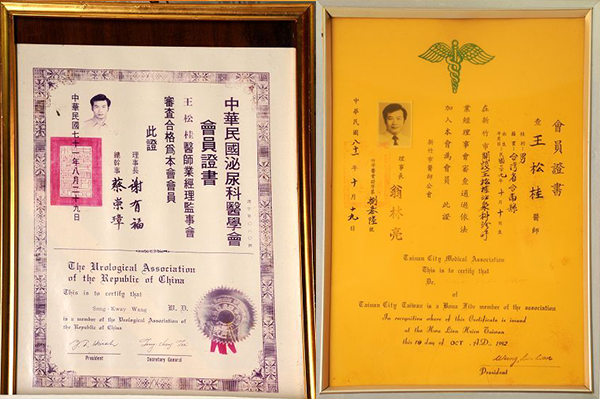 中華民國泌尿科醫學會
會員證書
王松桂醫師業經理監事會
審查合格為本會會員
此證
理事長 謝有福
總幹事 蔡崇璋
中華民國七十一年八月二十九日
The Urological Association
of the Republic of China
This is to certify that
Song-Kway Wang M. D.
is a member of the Urological Association of
the Republic of China
President
Secretary General
會員證書
查 王松桂 醫師
性別 男
台灣省台南縣
在新竹市開設王松桂泌尿科診所
業經理事會審查通過依法
加入本會為會員 此證
新竹市醫師公會
理事長 翁林亮
中華民國八十一年十月十九日
Tainan City Medical Association
This is to certify that
Dr.
of
Tainan City Taiwan is a Bona Fide member of the association
In recognition where of this Certificate is issued
at the Hwa Lien Hsien Taiwan
this 19 day of OCT. A.D., 1992
President